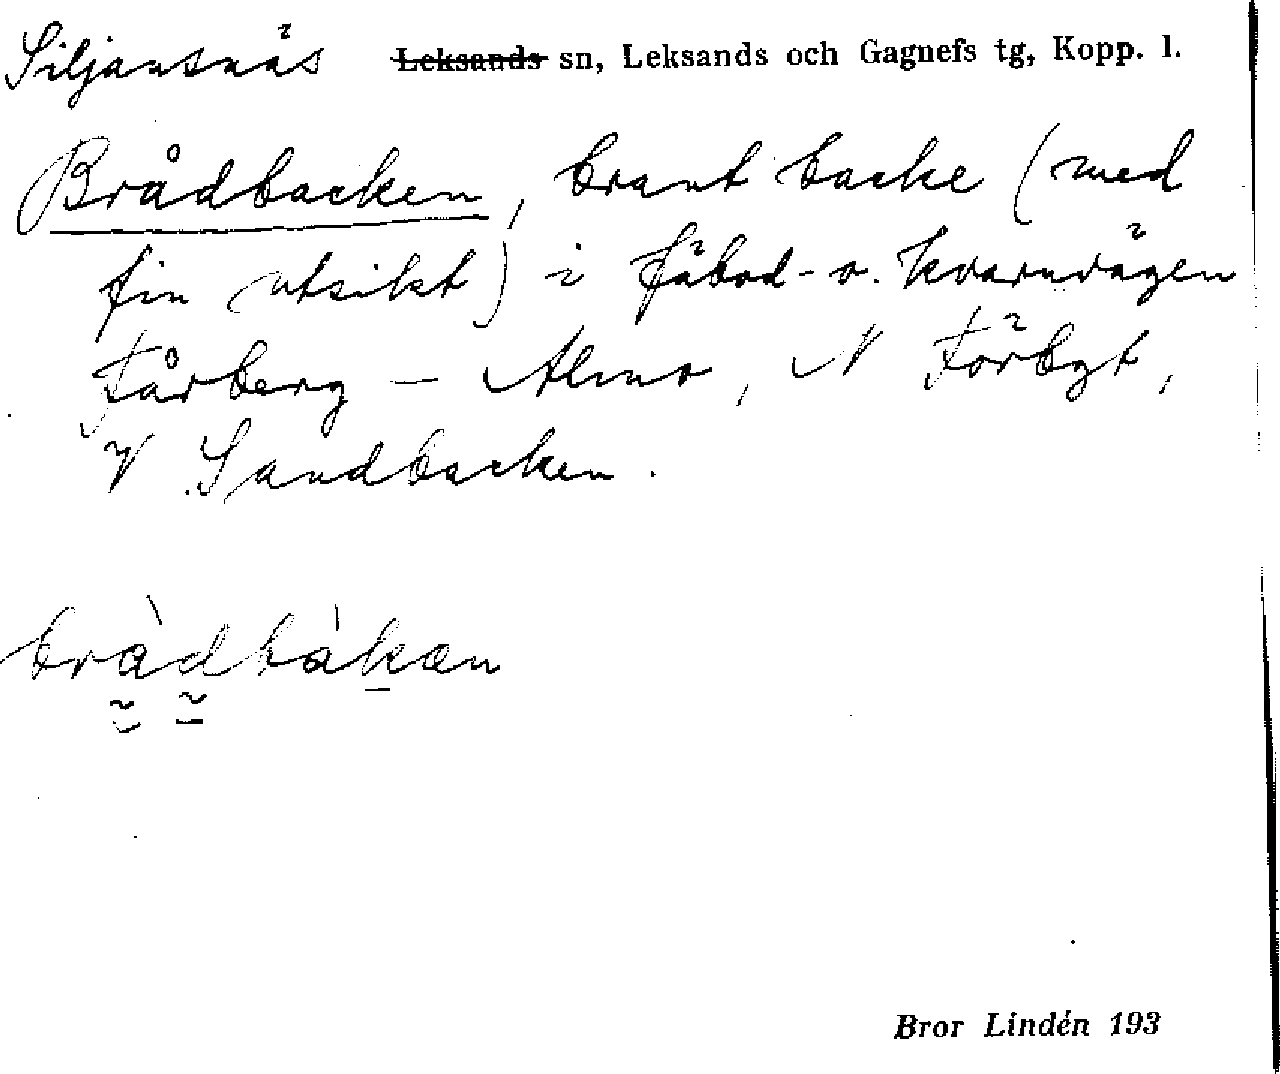 Siljansnäs Leksands sn, Leksands och Gagnefs tg, Kopp. l.
Brådbacken, brant backe (med
fin utsikt) i fäbod- o. kvarnvägen
Fårberg – Almo, N Förbgt,
V Sandbacken.
bràdbàkan
Bror Lindén 193